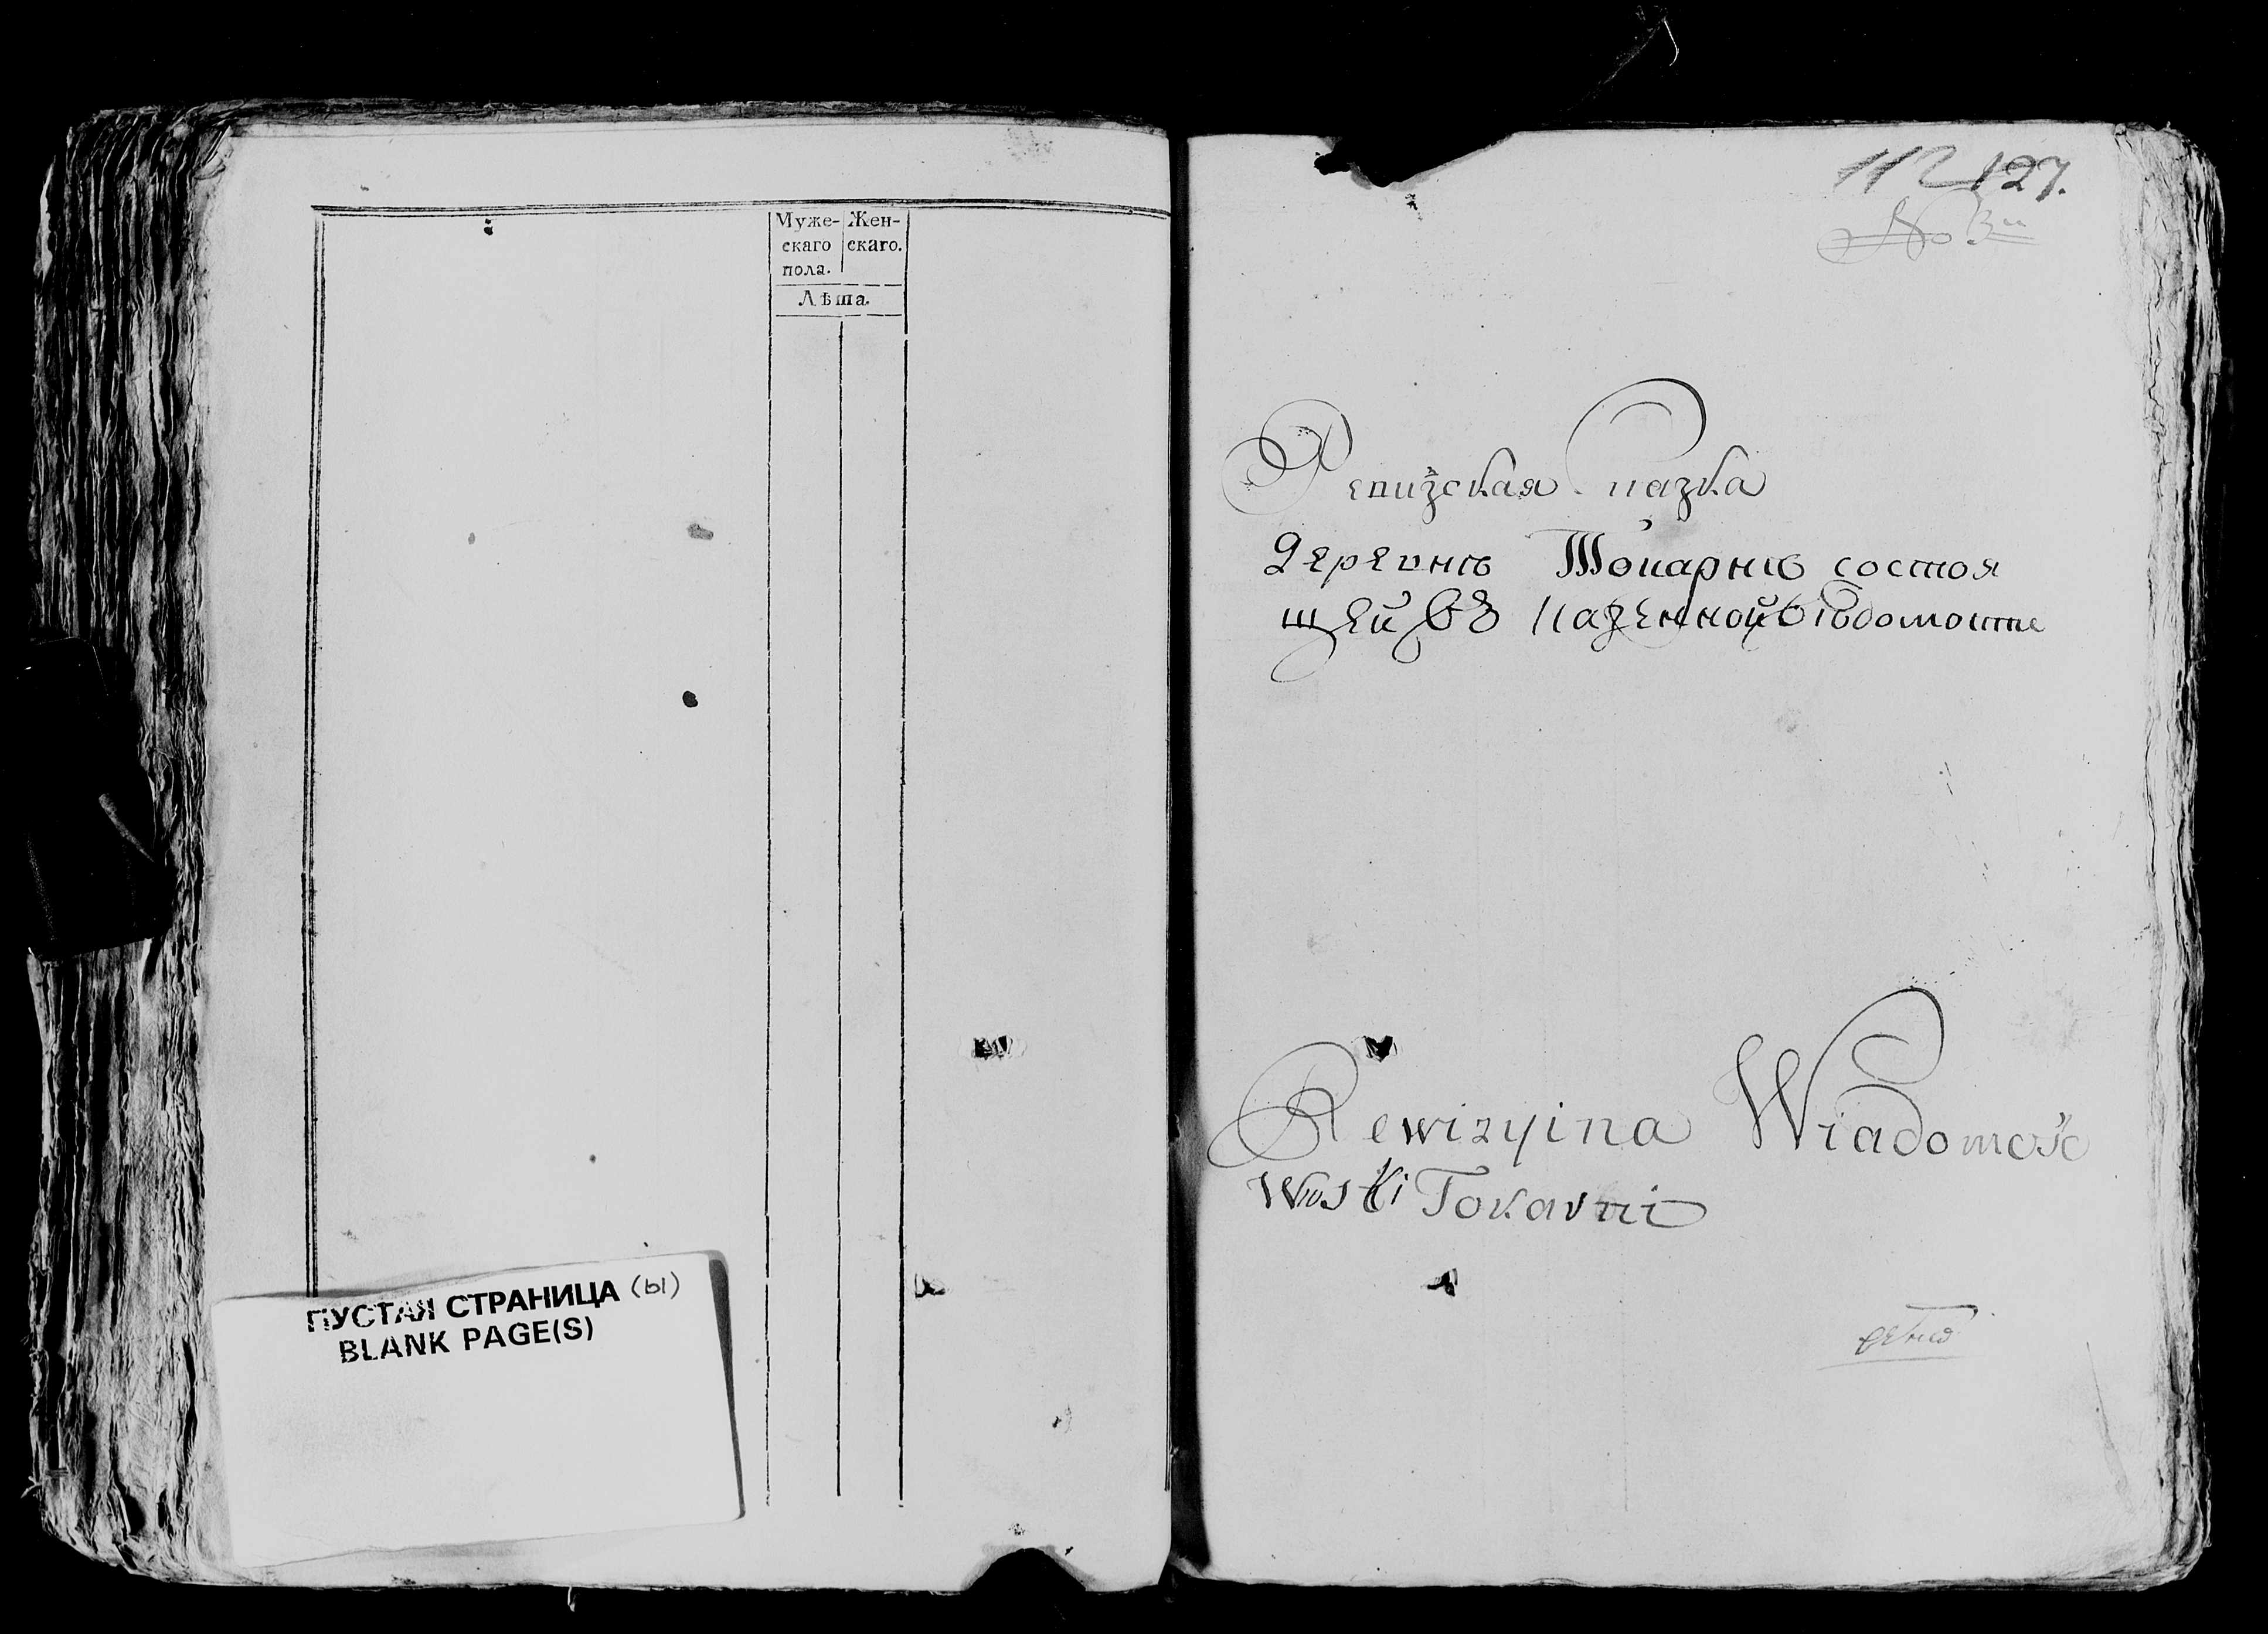 Муже- Жен-
скаго скаго.
пола.
Лѣта.
ПУСТАЯ СТРАНИЦА (ы)
BLANK PAGE(S)
112 127.
No 3
Ревизская сказка
Деревнѣ Токарнѣ состоя
щей въ Казенной Вѣдомости
Rewizyina Wiadomość
Wioski Tokarni